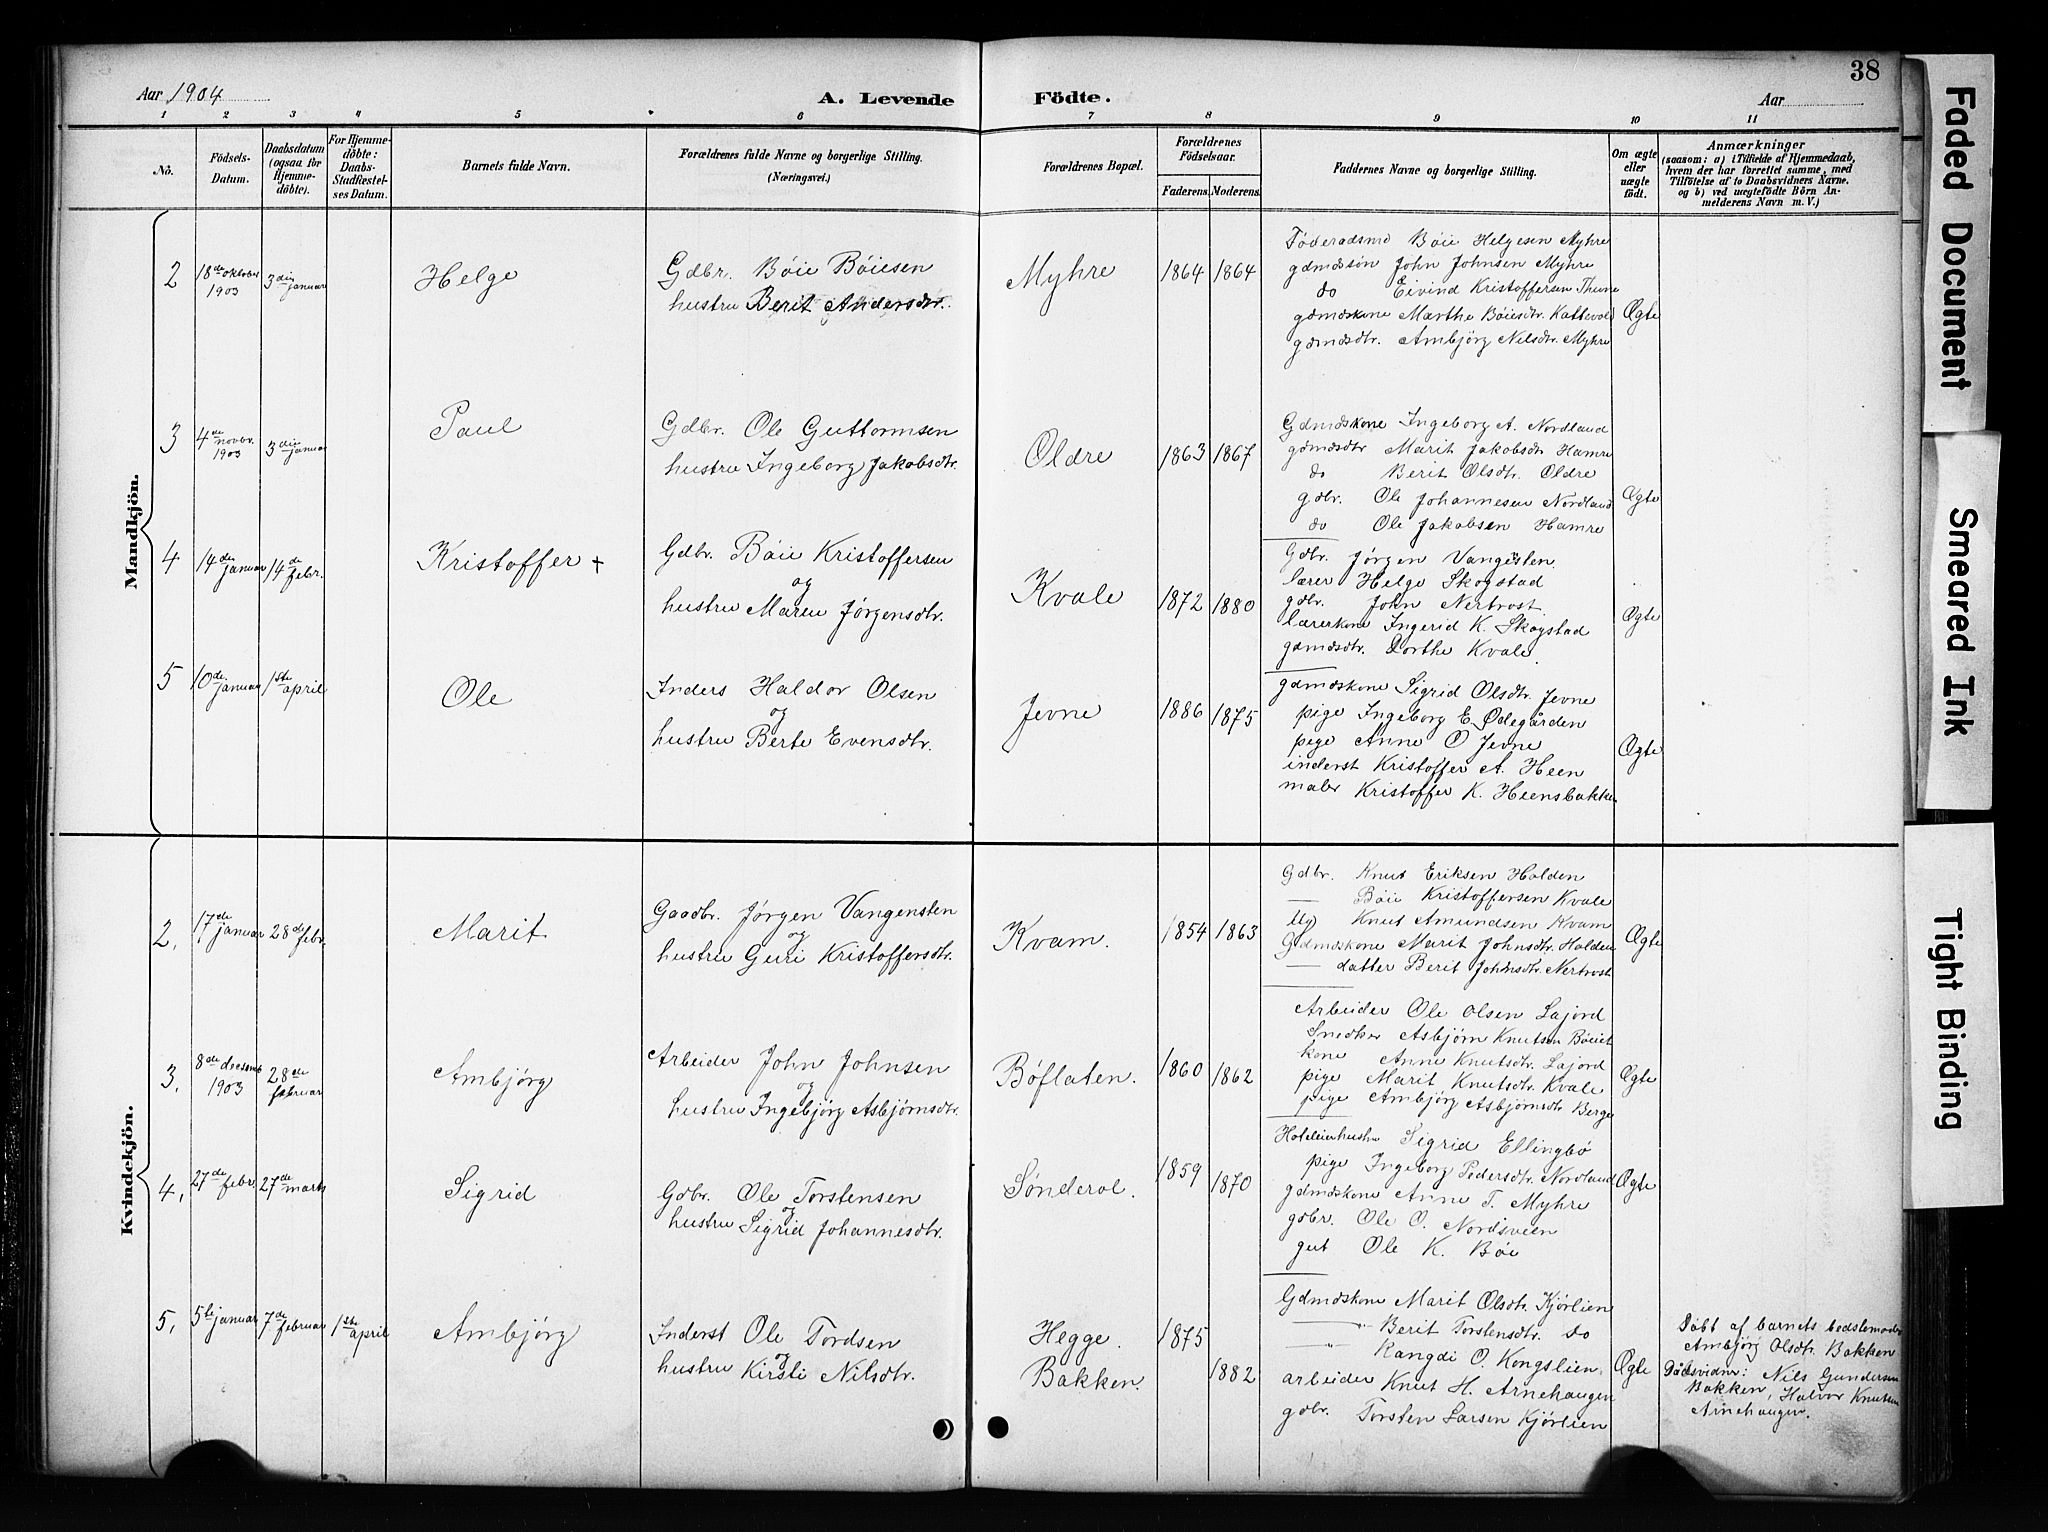 38
Aar 1904
A. Levende Födte.
Aar
1 2 3 4 5 6 7 8 9 10 11
No.
Födsels-Datum.
Daabsdatum (ogsaa for Hjemmedöbte).
For Hjemmedöbte: Daabs-Stadfæstelses Datum.
Barnets fulde Navn.
Forældrenes fulde Navne og borgerlige Stilling. (Næringsvei.)
Forældrenes Bopæl.
Forældrenes Födselsaar.
Faderens. Moderens.
Faddernes Navne og borgerlige Stilling.
Om ægte eller uægte födt.
Anmærkninger
(saasom: a) i Tilfælde af Hjemmedaab, hvem der har forrettet samme, med Tilföielse af to Daabsvidners Navne. og b) ved uægtefödte Börn Anmelderens Navn m. V.)
Mandkjön.
2
18de oktober 1903
3die januar
Helge
Gdbr. Bøie Bøiesen
hustru Berit Andersdtr.
Myhre
1864 1864
Føderadsmd Bøie Helgesen Myhre
gdmdssøn John Johnsen Myhre
do Eivind Kristoffersen Thune
gdmdskone Marthe Bøiesdtr. Kattevold
gdmdsdtr. Ambjörg Nilsdtr. Myhre
Ægte
3
4de novbr. 1903
3die januar
Paul
Gdbr. Ole Guttormsen
hustru Ingeborg Jakobsdtr.
Oldre
1863 1867
Gdmdskone Ingeborg A. Nordland
gdmdsdtr Marit Jakobsdtr Hamre
do Berit Olsdtr. Oldre
gdbr. Ole Johannesen Nordland
do Ole Jakobsen Hamre
Ægte
4
14de januar
14de febr.
Kristoffer +
Gdbr. Bøie Kristoffersen
og
hustru Maren Jørgensdtr.
Kvale
1872 1880
Gdbr. Jørgen Vangesten
lærer Helge Skogstad
gdbr. John Nertrost.
lærerkone Ingerid K. Skogstad
gdmdsdtr. Dorthe Kvale.
Ægte
5
10de januar
1ste april
Ole
Inders Haldor Olsen
og
hustru Berte Evensdtr.
Jevne
1886 1875
gdmdskone Sigrid Olsdtr. Jevne
pige Ingeborg E. Ødegården
pige Anne O Jevne
inderst Kristoffer A. Heen
maler Kristoffer K. Heensbakken
Ægte
Kvindekjön.
2,
17de januar
28de febr.
Marit
Gaadbr. Jørgen Vangensten
og
hustru Guri Kristoffersdtr.
Kvam.
1854 1863
Gdbr. Knut Eriksen Holden
— Bøie Kristoffersen Kvale
Ug Knut Amundsen Kvam
Gdmdskone Marit Johnsdtr. Holden
— datter Berit Johnsdtr. Nertrost
Ægte
3,
8de decemb 1903
28de februar
Ambjörg
Arbeider John Johnsen
og
hustru Ingebjörg Asbjørnsdtr.
Bøflaten.
1860 1862
Arbeider Ole Olsen Lajord
Snedker Asbjørn Knutsen
kone Anne Knutsdtr. Lajord
pige Marit Knutsdtr. Kvale
pige Ambjörg Asbjørnsdtr. Berge
Ægte
4,
27de febr.
27de marts
Sigrid
Gdbr. Ole Torstensen
og
hustru Sigrid Johannesdtr.
Sønderol.
1859 1870
Hoteleierhustru Sigrid Ellingbø
pige Ingeborg Pedersdtr. Nordland
gdmdskone Anne T. Myhre
gdbr. Ole O. Nordsveen
gut Ole K. Bøe
Ægte
5,
5te januar
7de februar
1ste april
Ambjörg
Inderst Ole Tordsen
og
hustru Kirsti Nilsdtr.
Hegge.
Bakken.
1875
1882
Gdmdskone Marit Olsdtr. Kjørlien
—"— Berit Torstensdtr. do
—"— Rangdi O. Kongslien.
arbeider Knut H. Arnehaugen
gdbr. Torsten Larsen Kjørlien
Ægte
Døbt af barnets bedstemoder
Ambjörg Olsdtr. Bakken
Dåbsvidner: Nils Gundersen
Bakken, Halvor Knutsen
Arnehaugen.
Faded Document
Smeared Ink
Tight Binding